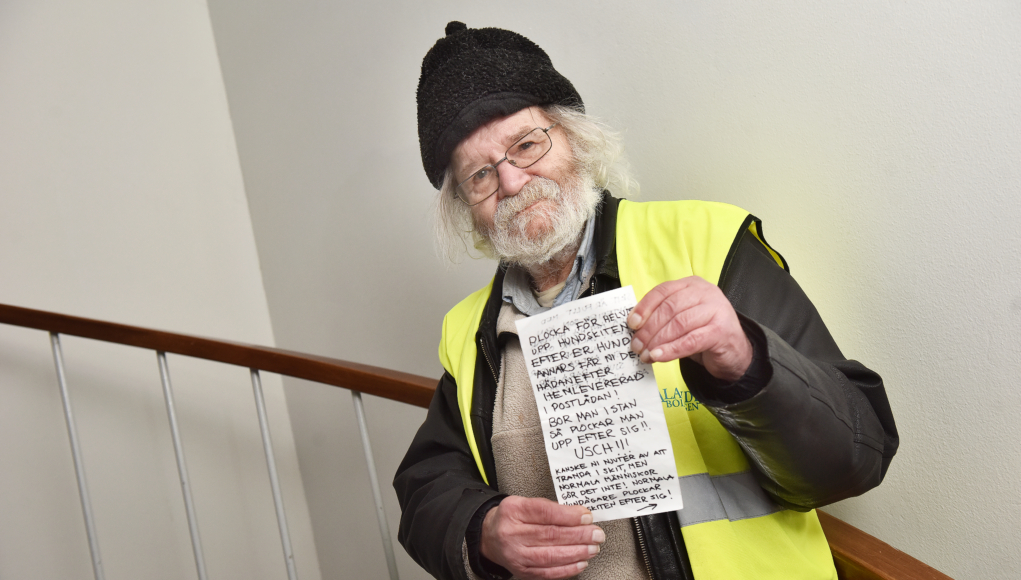 PLOCKA FÖR HELVETE
UPP HUNDSKITEN
EFTER ER HUND
ANNARS FÅR NI DEN
HÄDANEFTER
HEMLEVERERAD
I POSTLÅDAN!
BOR MAN I STAN
SÅ PLOCKAR MAN
UPP EFTER SIG!!
USCH!!!
KANSKE NI NJUTER AV ATT
TRAMPA I SKIT, MEN
NORMALA MÄNNISKOR
GÖR DET INTE! NORMALA
HUNDÄGARE PLOCKAR
SKITEN EFTER SIG!